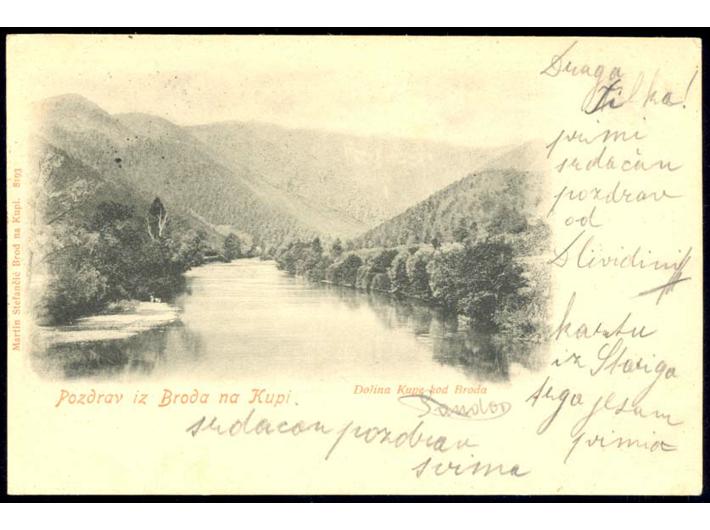 Draga
Zilka!
primi
srdačan
pozdrav
od
kartu
iz Staroga
trga jesam
primio
Martin Stefančić Brod na Kupi. 8193
Dolina Kupe kod Broda
Pozdrav iz Broda na Kupi.
srdačan pozdrav
svima